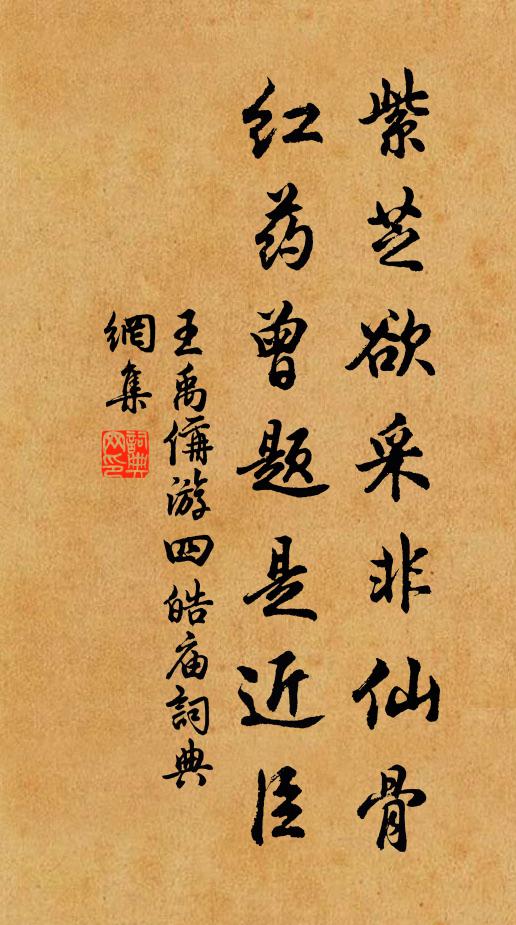 紫芝欲采非仙骨
红药曾题是近臣
王禹偁游四皓庙詞典
網集
詞典网印